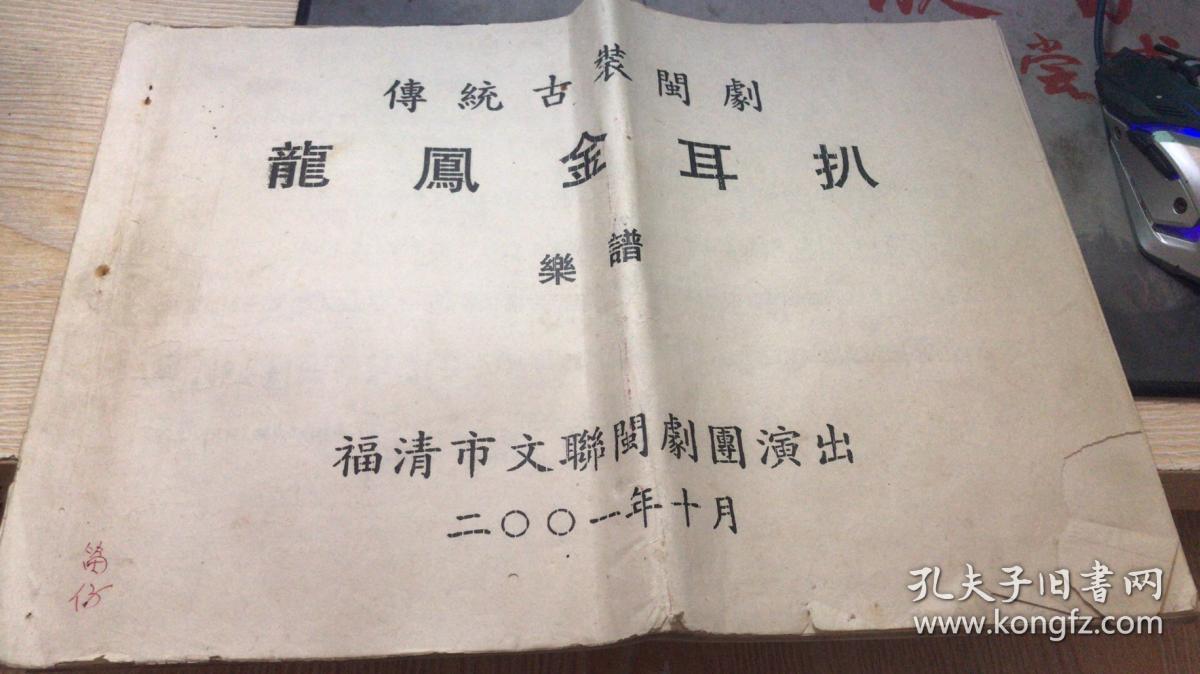 傳統古裝閩劇
龍鳳金耳扒
樂譜
福清市文聯閩劇團演出
二〇〇一年十月
孔夫子旧书网
www.kongfz.com